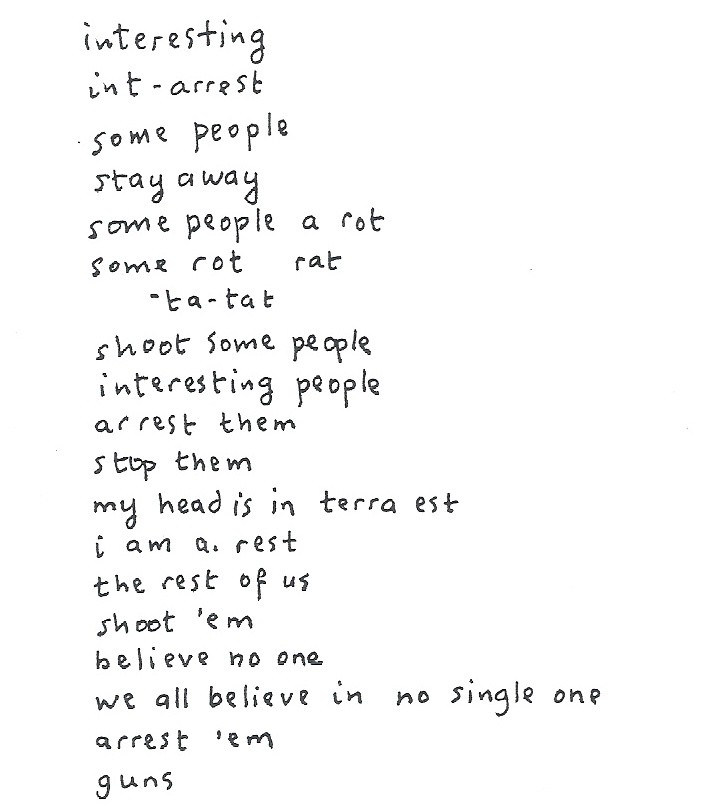 interesting
int-arrest
some people
stay away
some people a rot
some rot rat
-ta-tat
shoot some people
interesting people
arrest them
stop them
my head is in terra est
i am a. rest
the rest of us
shoot 'em
believe no one
we all believe in no single one
arrest 'em
guns